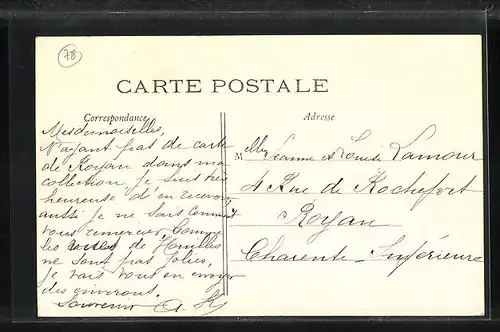 78
CARTE POSTALE
Correspondance
Adresse
Mesdemoiselles,
N'ayant pas de carte
de Royan dans ma
collection je suis très
heureuse d'en recevoir
aussi je ne sais comment
vous remercier, Comme
les cartes de Houilles
ne sont pas jolies,
je vais vous en envoyer
des environs.
Souvenir
M Mlles Jeanne et Louise Lamour
4 Rue de Rochefort
Royan
Charente-Inférieure